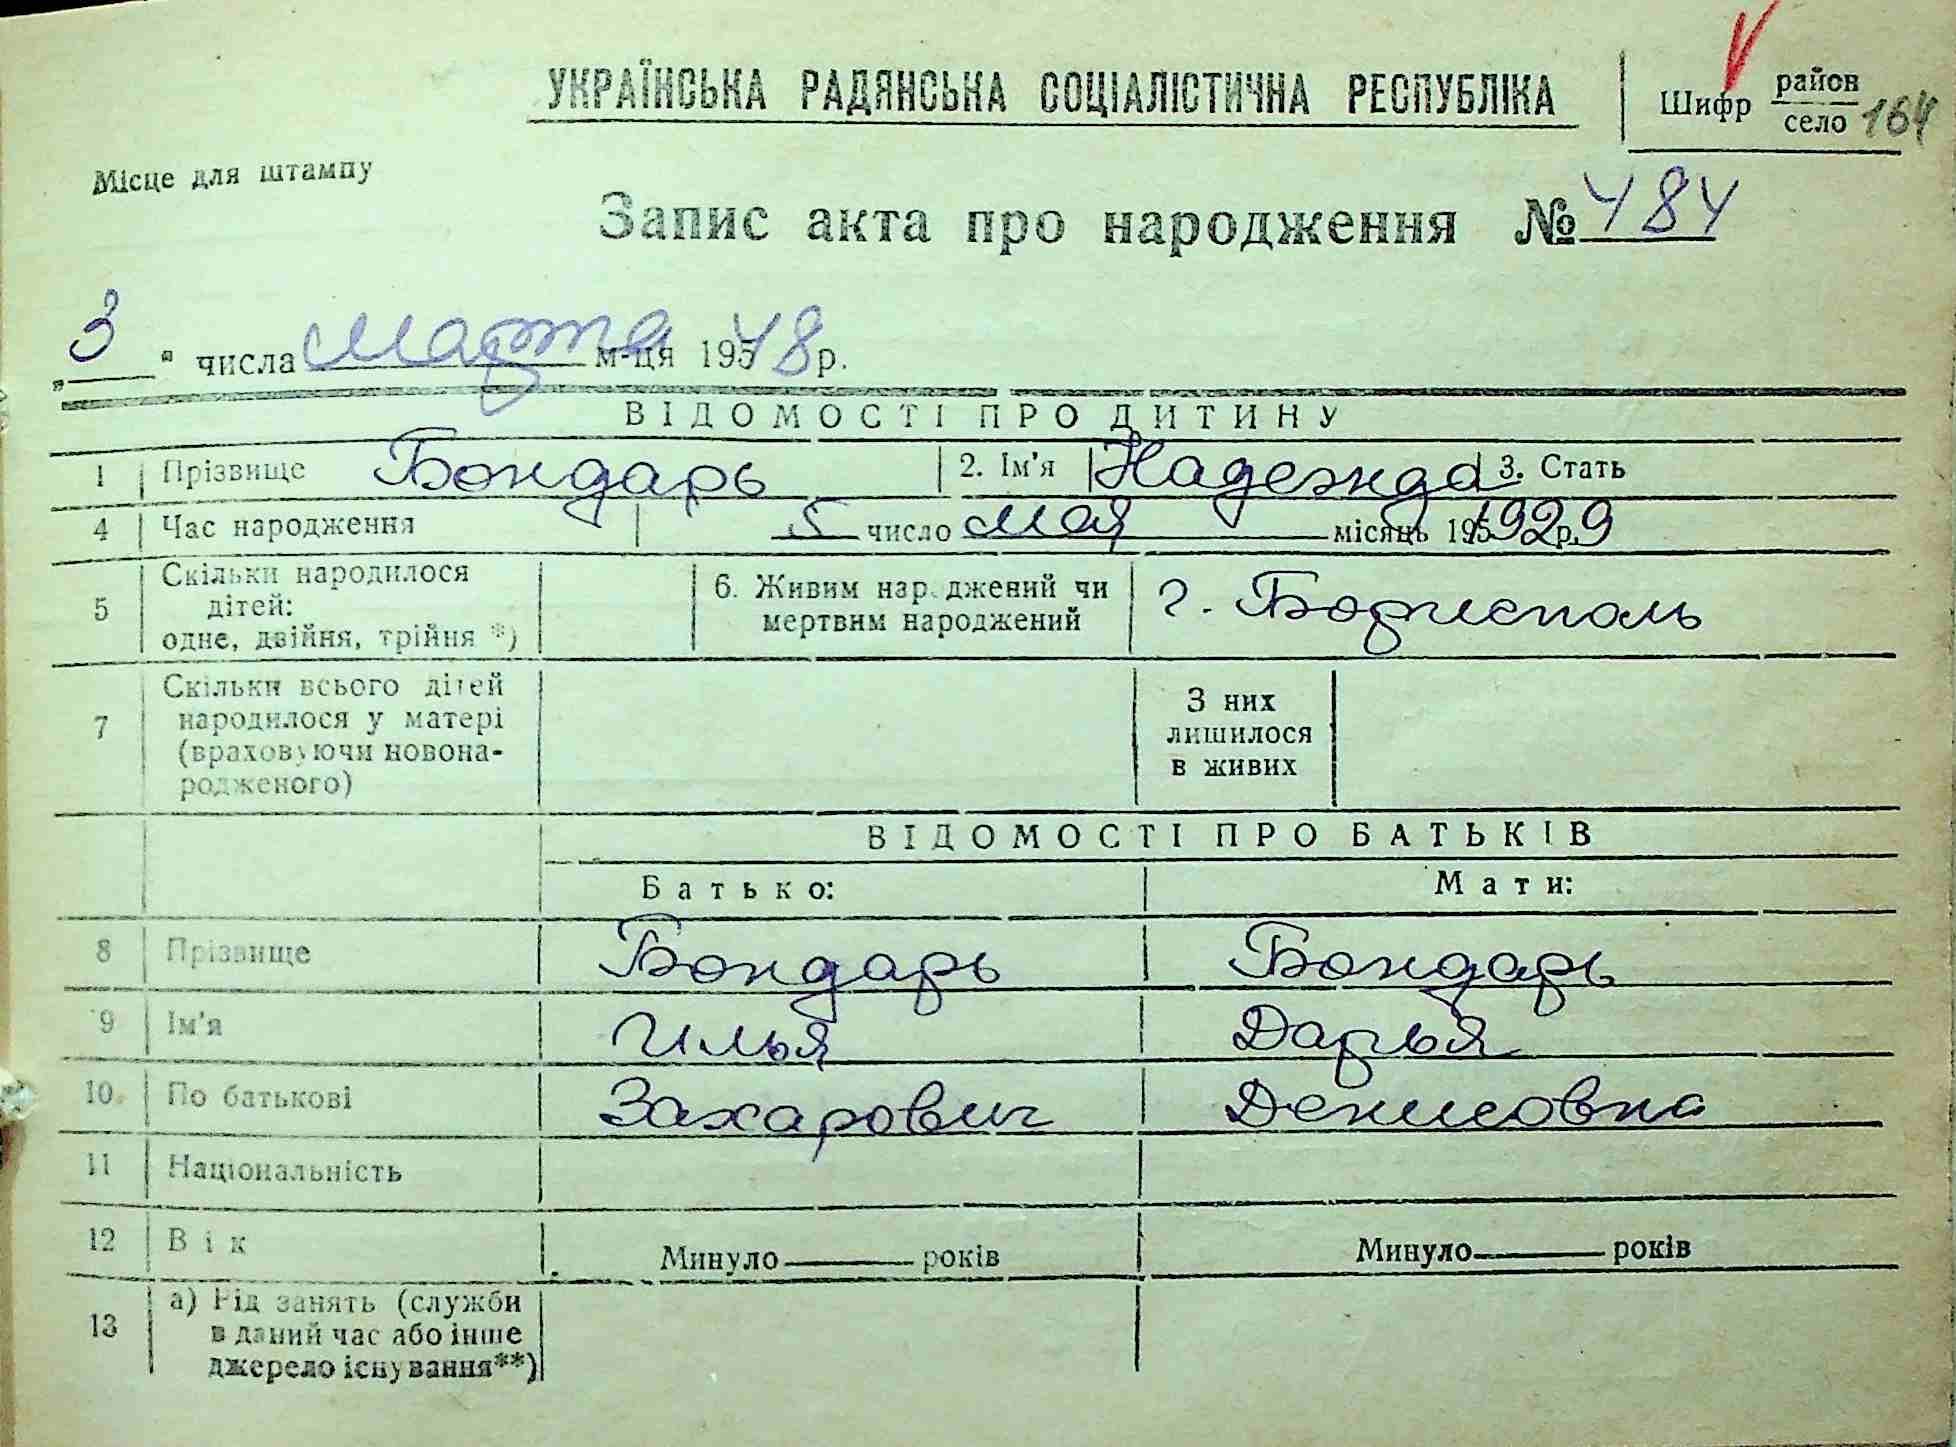 УКРАЇНСЬКА РАДЯНСЬКА СОЦІАЛІСТИЧНА РЕСПУБЛІКА
Шифр район село 164
Місце для штампу
Запис акта про народження № 484
„3“ числа марта м-ця 195 48 р.
ВІДОМОСТІ ПРО ДИТИНУ
1 Прізвище Бондарь 2. Ім'я Надежда 3. Стать
4 Час народження 5 число мая місяць 195 1929 р.
5 Скільки народилося дітей: одне, двійня, трійня *) 6. Живим народжений чи мертвим народжений г. Борисполь
7 Скільки всього дітей народилося у матері (враховуючи новонародженого) З них лишилося в живих
ВІДОМОСТІ ПРО БАТЬКІВ
Батько: Мати:
8 Прізвище Бондарь Бондарь
9 Ім'я Илья Дарья
10. По батькові Захарович Денисовна
11 Національність
12 Вік Минуло років Минуло років
13 а) Рід занять (служби в даний час або інше джерело існування**)